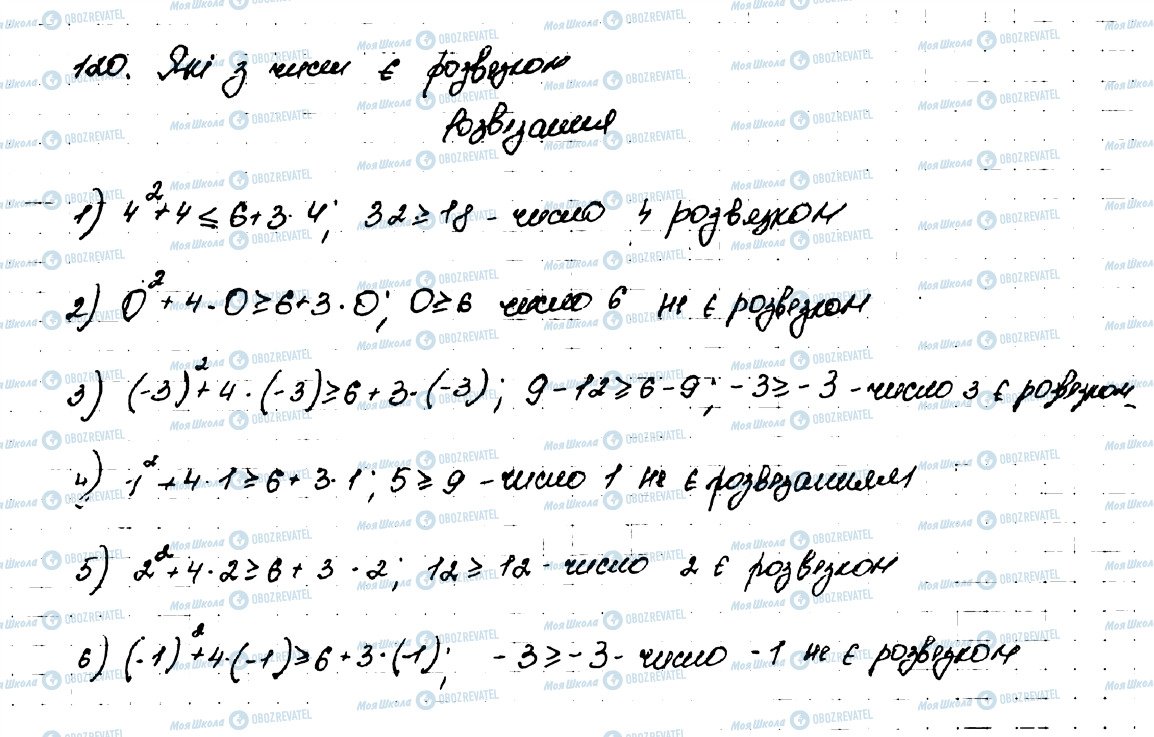 120. Які з чисел є розвязком
Розвязання
1) 4² + 4 ≤ 6 + 3 · 4; 32 ≥ 18 - число 4 розвязком
2) 0² + 4 · 0 ≥ 6 + 3 · 0; 0 ≥ 6 число 6 не є розвезком
3) (-3)² + 4 · (-3) ≥ 6 + 3 · (-3); 9 - 12 ≥ 6 - 9; -3 ≥ -3 - число 3 є розвезком
4) 1² + 4 · 1 ≥ 6 + 3 · 1; 5 ≥ 9 - число 1 не є розвезанням
5) 2² + 4 · 2 ≥ 6 + 3 · 2; 12 ≥ 12 - число 2 є розвезком
6) (-1)² + 4 · (-1) ≥ 6 + 3 · (-1); -3 ≥ -3 - число -1 не є розвезком
Моя Школа OBOZREVATEL